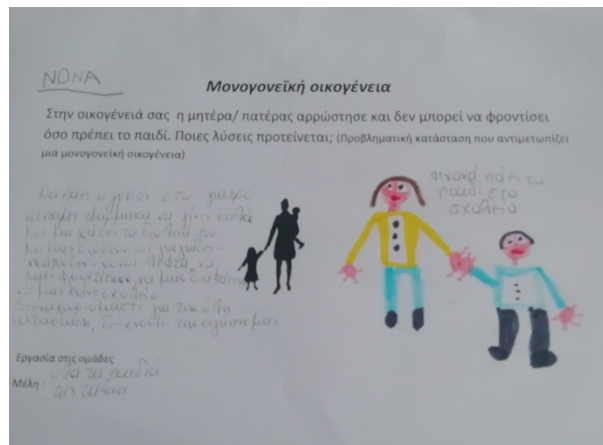 ΝΟΝΑ
Μονογονεϊκή οικογένεια
Στην οικογένειά σας η μητέρα/ πατέρας αρρώστησε και δεν μπορεί να φροντίσει
όσο πρέπει το παιδί. Ποιες λύσεις προτείνεται; (Προβληματική κατάσταση που αντιμετωπίζει
μια μονογονεϊκή οικογένεια)
Να πάει ο γονιός στο γιατρό
να πάρει φάρμακα να γίνει καλά
Να μη χάσει τη δουλειά του
Να μας δώσουν οι
λεφτά, να
μας φροντίσουν, να μας
να μας πάνε σχολείο
Στεναχωριόμαστε για την όλη
κατάσταση, την αγάπη μας
η νονά πάει το
παιδί στο
σχολείο
Εργασία στις ομάδες
Μέλη : Όλα τα παιδιά
της τάξης